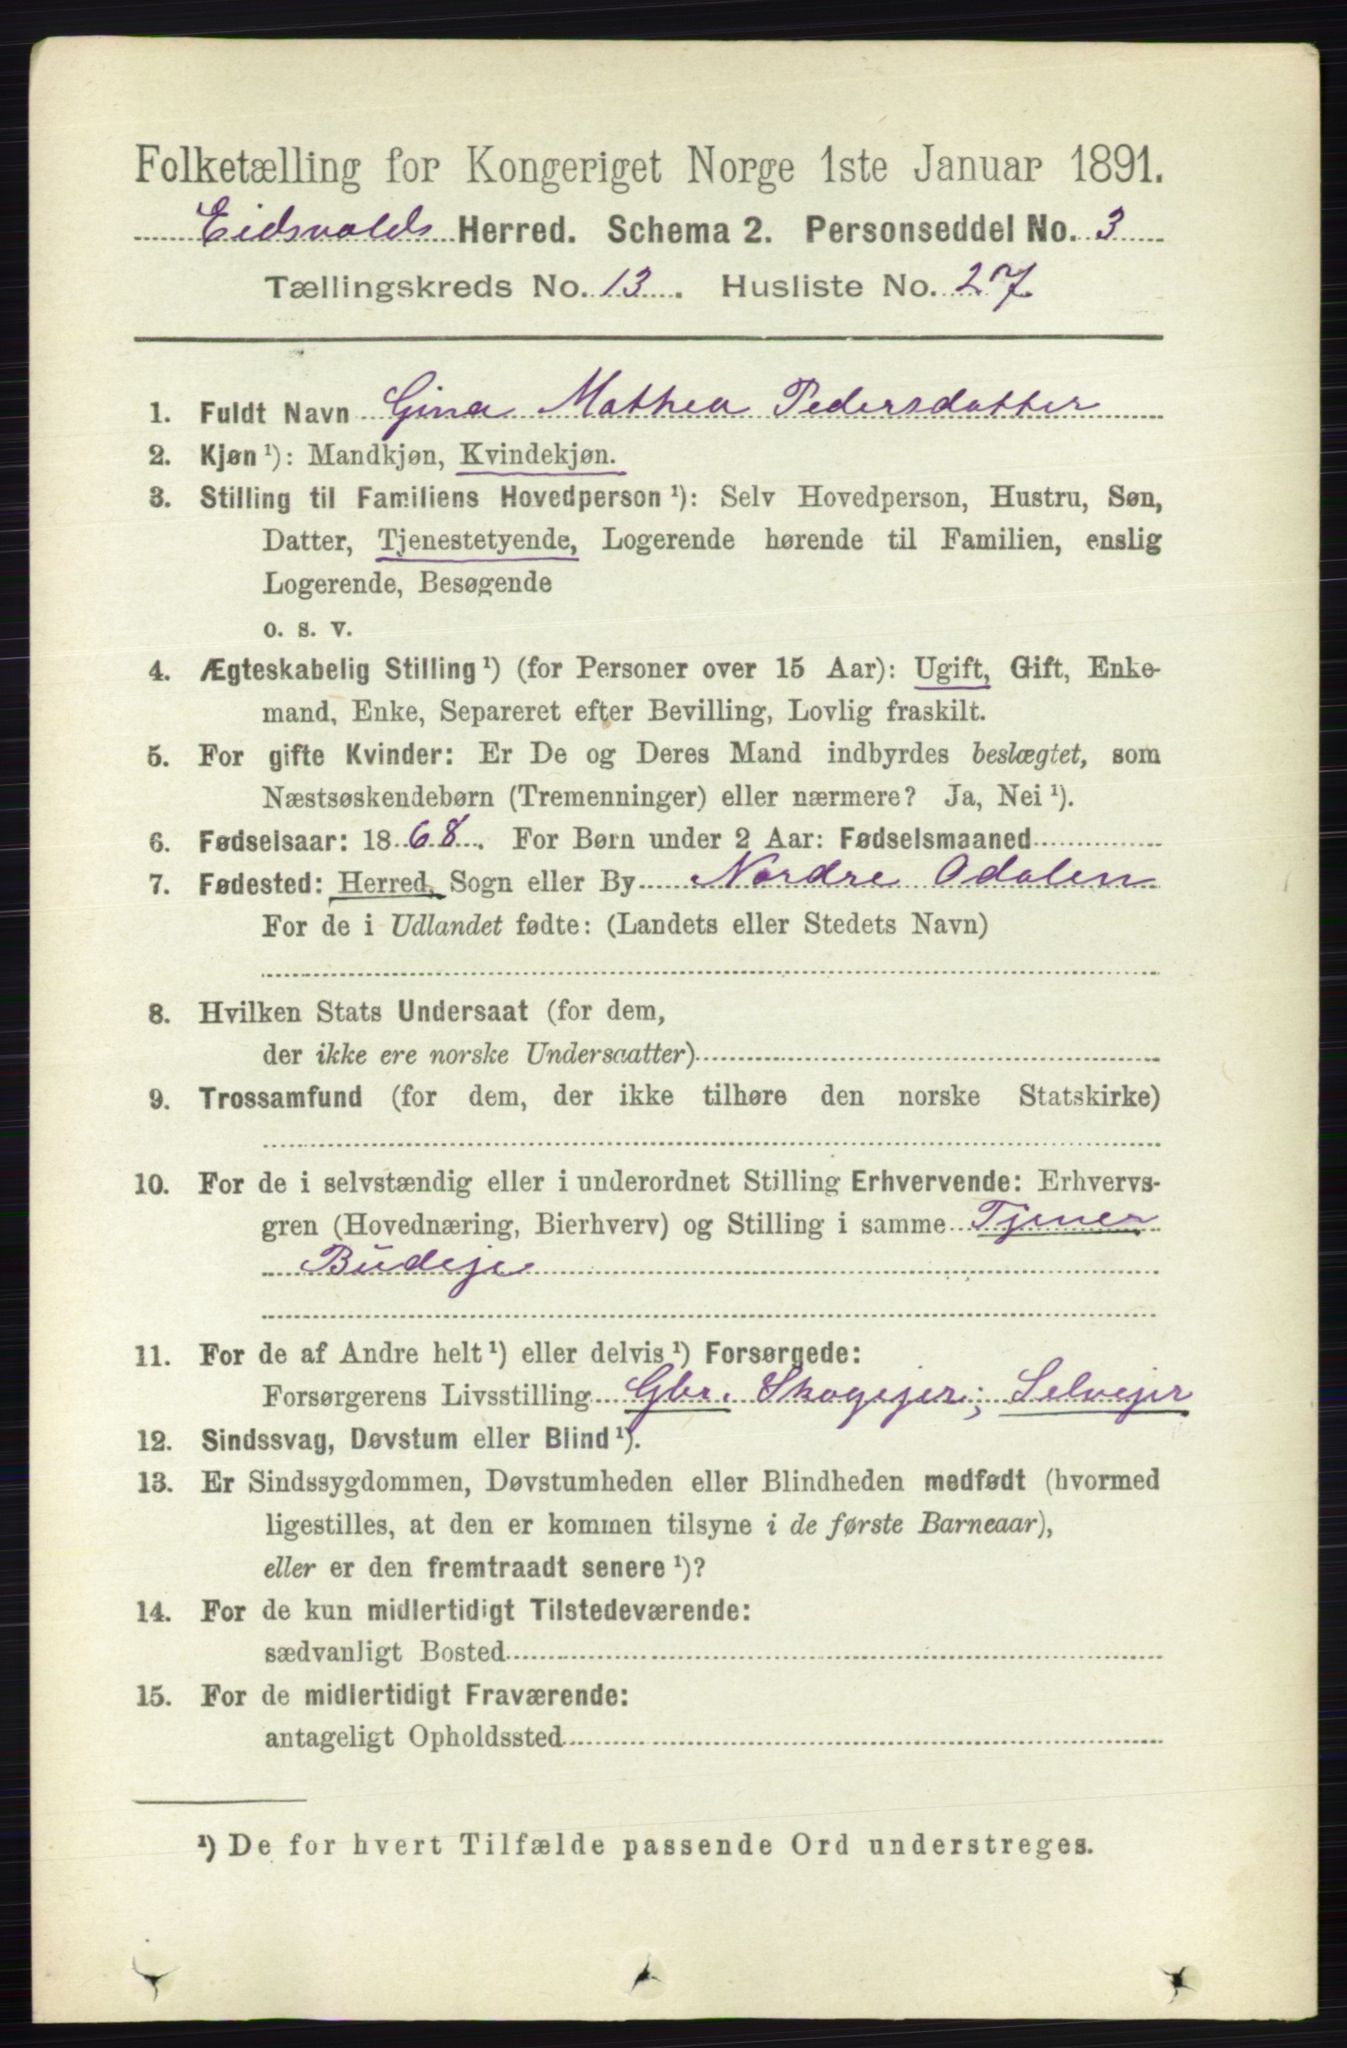 Folketælling for Kongeriget Norge 1ste Januar 1891.
Eidsvolds Herred. Schema 2. Personseddel No. 3
Tællingskreds No. 13. Husliste No. 27
1. Fuldt Navn Gina Mathea Pedersdatter
2. Kjøn ¹): Mandkjøn, Kvindekjøn.
3. Stilling til Familiens Hovedperson ¹): Selv Hovedperson, Hustru, Søn,
Datter, Tjenestetyende, Logerende hørende til Familien, enslig
Logerende, Besøgende
o. s. v.
4. Ægteskabelig Stilling ¹) (for Personer over 15 Aar): Ugift, Gift, Enke-
mand, Enke, Separeret efter Bevilling, Lovlig fraskilt.
5. For gifte Kvinder: Er De og Deres Mand indbyrdes beslægtet, som
Næstsøskendebørn (Tremenninger) eller nærmere? Ja, Nei ¹).
6. Fødselsaar: 1868. For Børn under 2 Aar: Fødselsmaaned
7. Fødested: Herred, Sogn eller By Nordre Odalen
For de i Udlandet fødte: (Landets eller Stedets Navn)
8. Hvilken Stats Undersaat (for dem,
der ikke ere norske Undersaatter)
9. Trossamfund (for dem, der ikke tilhøre den norske Statskirke)
10. For de i selvstændig eller i underordnet Stilling Erhvervende: Erhvervs-
gren (Hovednæring, Bierhverv) og Stilling i samme Tjener
Budeje
11. For de af Andre helt ¹) eller delvis ¹) Forsørgede:
Forsørgerens Livsstilling Gbr. Skogejer; Selvejer
12. Sindssvag, Døvstum eller Blind ¹).
13. Er Sindssygdommen, Døvstumheden eller Blindheden medfødt (hvormed
ligestilles, at den er kommen tilsyne i de første Barneaar),
eller er den fremtraadt senere ¹)?
14. For de kun midlertidigt Tilstedeværende:
sædvanligt Bosted
15. For de midlertidigt Fraværende:
antageligt Opholdssted
¹) De for hvert Tilfælde passende Ord understreges.